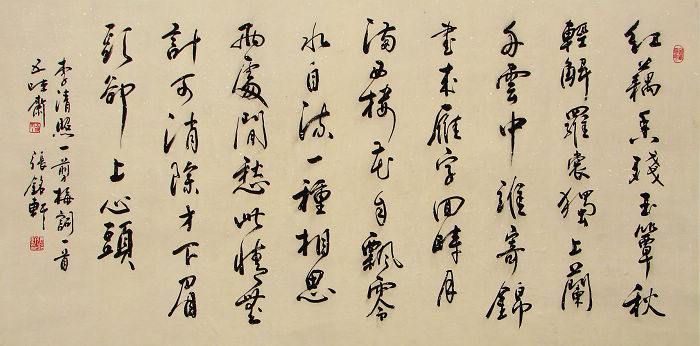 紅藕香殘玉簟秋
輕解羅裳獨上蘭
舟雲中誰寄錦
書來雁字回時月
滿西樓花自飄零
水自流一種相思
兩處閒愁此情無
計可消除才下眉
頭卻上心頭
李清照一剪梅詞一首
張銘軒